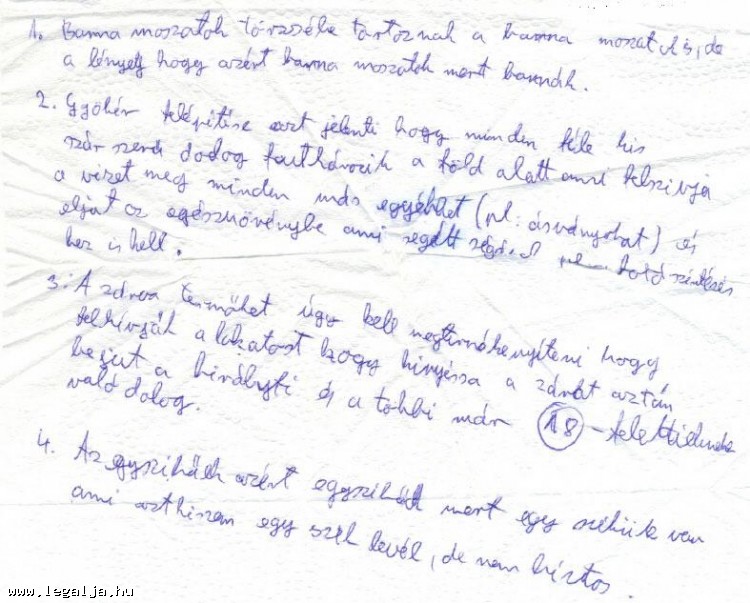 1. Barna moszatok törzsébe tartoznak a barna moszat is, de
a lényeg hogy azért barna moszatok mert barnák.
2. Gyökér felépítése azt jelenti hogy minden féle kis
szár szerű dolog a föld alatt ami felszívja
a vizet meg minden más egyébket (pl: ásványokat) és
eljut az egésznövénybe ami
hez is kell.
3. A zárva termőket úgy kell megtermékenyíteni hogy
felhívják a lakatost hogy kinyissa a zárat aztán
bejut a és a többi már 18 - felettieknek
való dolog.
4. Az egyszikűek azért egyszikűek mert egy szikük van
ami azthiszem egy szik levél, de nem biztos.
www.legalja.hu